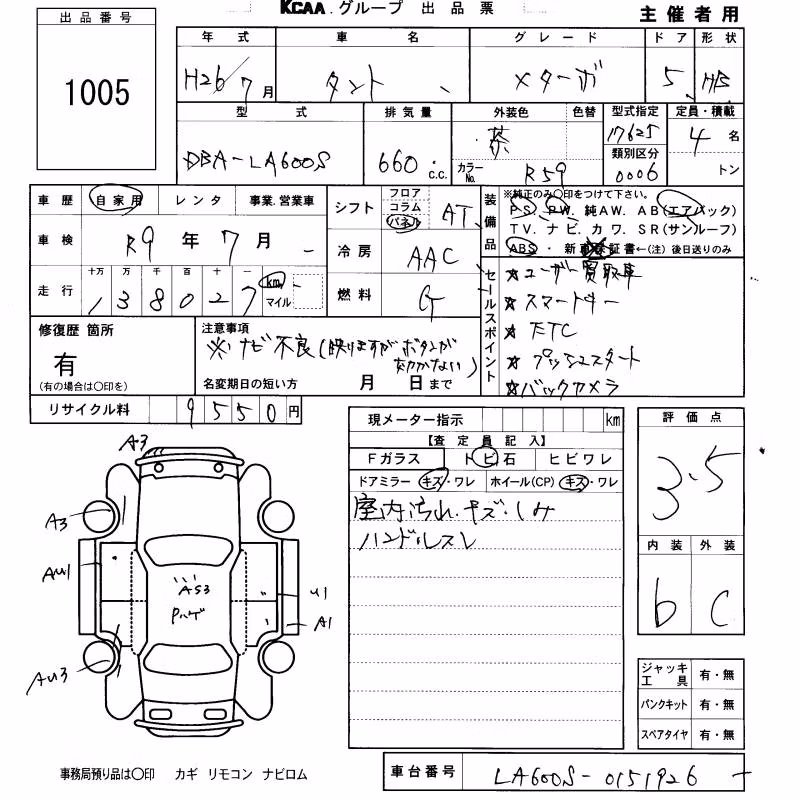 出品番号
1005
KCAA.グループ 出品票
主催者用
年式 車名 グレード ドア 形状
H26/7月 タント Xターボ 5 HB
型式 排気量 外装色 色替 型式指定 定員・積載
DBA-LA600S 660 c.c. 茶 17625 4名
カラーNo. R59 類別区分 0006 トン
車歴 自家用 レンタ 事業.営業車
車検 R9年7月
走行 十万 万 千 百 十 一
138027 km マイル
シフト フロア コラム パネル AT
冷房 AAC
燃料 G
装備品
※純正のみ〇印をつけて下さい。
PS.PW.純AW.AB(エアバック)
TV.ナビ.カワ.SR(サンルーフ)
ABS・新車保証書←(注)後日送りのみ
セールスポイント
☆ユーザー買取車
☆スマートキー
☆ETC
☆プッシュスタート
☆バックカメラ
修復歴 箇所
有
(有の場合は〇印を)
注意事項
※ナビ不良(映りますがボタンが
効かない)
名変期日の短い方 月 日まで
リサイクル料 9550円
現メーター指示 km
【査定員記入】
Fガラス トビ石 ヒビワレ
ドアミラー キズ・ワレ ホイール(CP) キズ・ワレ
室内汚れ.キズ.しみ
ハンドルスレ
評価点
3.5
内装 外装
b C
A3
A3
AU1
AS3
Pハゲ
U1
A1
AU3
ジャッキ工具 有・無
パンクキット 有・無
スペアタイヤ 有・無
事務局預り品は〇印 カギ リモコン ナビロム
車台番号 LA600S-0151926